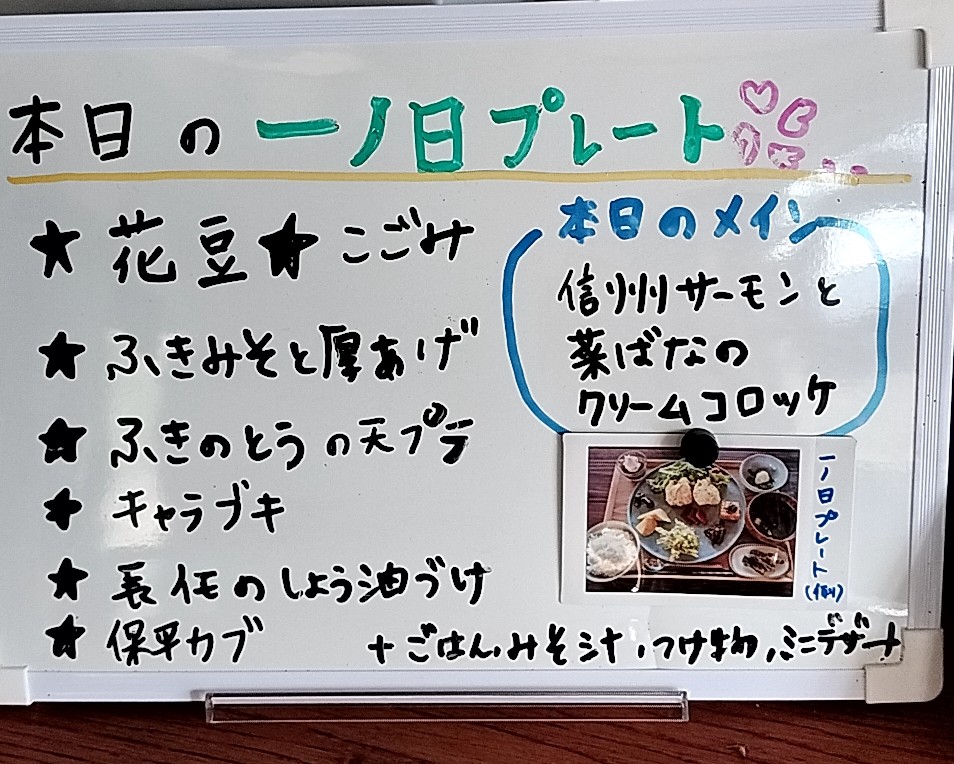 本日の一ノ日プレート
★花豆★こごみ
★ふきみそと厚あげ
★ふきのとうの天プラ
★キャラブキ
★長イモのしょう油づけ
★保平カブ
本日のメイン
信州サーモンと
菜ばなの
クリームコロッケ
一ノ日プレート(例)
+ごはん,みそ汁,つけ物,ミニデザート